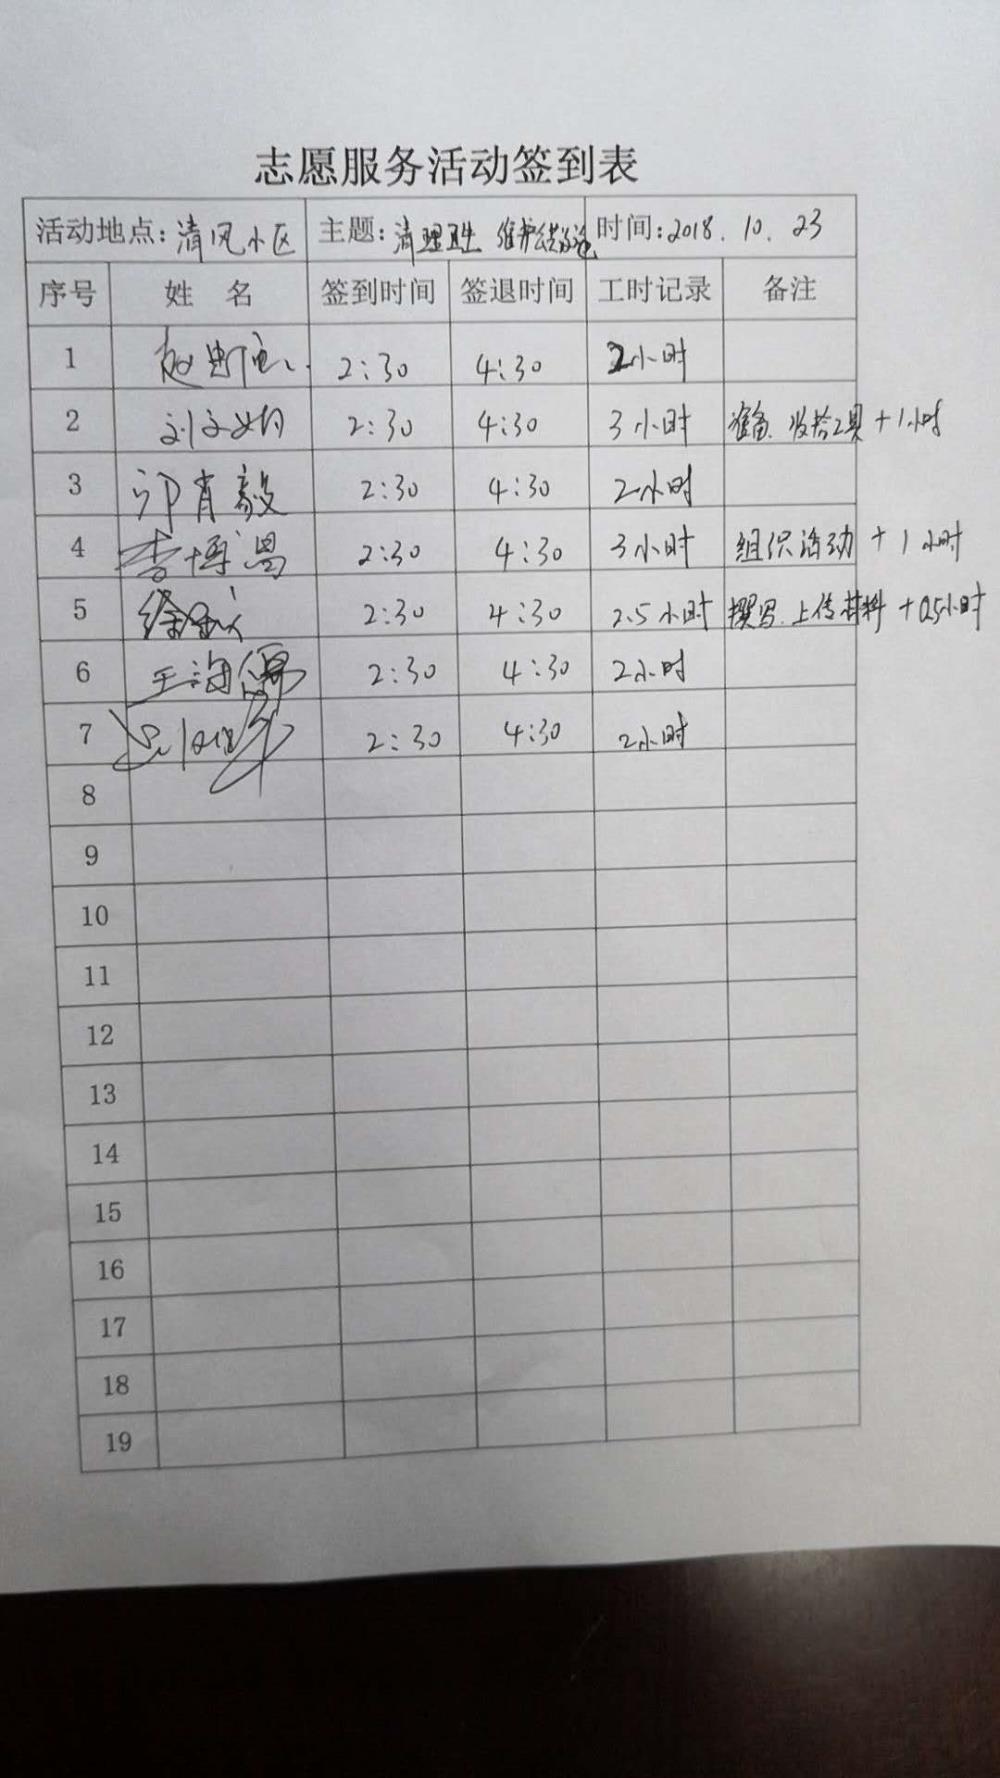 志愿服务活动签到表
活动地点: 清风小区 主题: 清理卫生 维护 时间: 2018. 10. 23
序号 姓 名 签到时间 签退时间 工时记录 备注
1 赵 2:30 4:30 2小时
2 刘文娟 2:30 4:30 3小时 准备、收拾工具+1小时
3 肖毅 2:30 4:30 2小时
4 李博 2:30 4:30 3小时 组织活动+1小时
5 徐 2:30 4:30 2.5小时 撰写、上传材料+0.5小时
6 王海儒 2:30 4:30 2小时
7 2:30 4:30 2小时
8
9
10
11
12
13
14
15
16
17
18
19